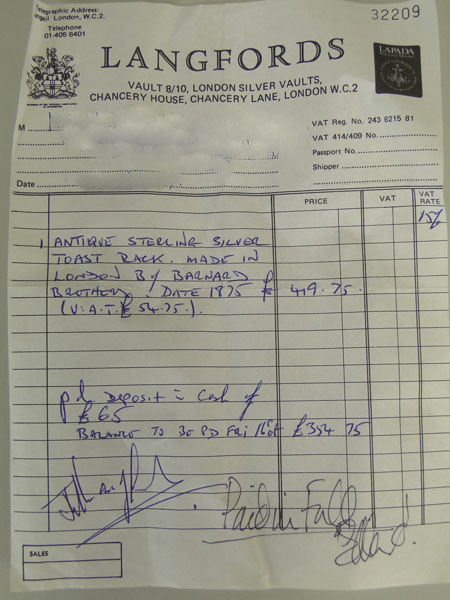 Telegraphic Address:
London, W.C.2.
32209
Telephone
01·405 6401
LANGFORDS
LAPADA
VAULT 8/10, LONDON SILVER VAULTS,
CHANCERY HOUSE, CHANCERY LANE, LONDON W.C.2
M
VAT Reg. No. 243 6215 81
VAT 414/409 No.
Passport No.
Shipper
Date
PRICE
VAT
VAT RATE
15%
1 ANTIQUE STERLING SILVER
TOAST RACK. MADE IN
LONDON BY BARNARD
BROTHERS. DATE 1875 £ 419.75.
(V.A.T. £ 54.75.).
pd Deposit = Cash of
£65
BALANCE TO BE PD FRI £354 75
Paid in Full
SALES